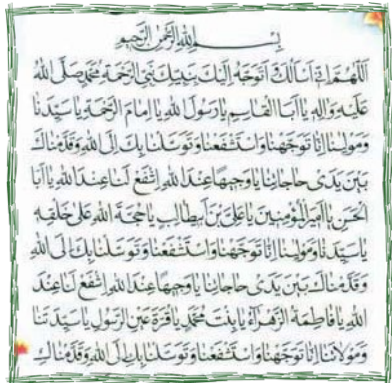 بِسْمِ اللهِ الرَّحْمٰنِ الرَّحِيمِ
اَللّٰهُمَّ اِنّى اَسْاَلُكَ وَاَتَوَجَّهُ اِلَيْكَ بِنَبِيِّكَ نَبِىِّ الرَّحْمَةِ مُحَمَّدٍ صَلَّى اللهُ
عَلَيْهِ وَآلِهِ يا اَبَا الْقاسِمِ يا رَسُولَ اللهِ يا اِمامَ الرَّحْمَةِ يا سَيِّدَنا
وَمَوْلينا اِنّا تَوَجَّهْنا وَاسْتَشْفَعْنا وَتَوَسَّلْنا بِكَ اِلَى اللهِ وَقَدَّمْناكَ
بَيْنَ يَدَىْ حاجاتِنا يا وَجيهًا عِنْدَ اللهِ اِشْفَعْ لَنا عِنْدَ اللهِ يا اَبَا
الْحَسَنِ يا اَميرَ الْمُؤْمِنينَ يا عَلِىَّ بْنَ اَبيطالِبٍ يا حُجَّةَ اللهِ عَلى خَلْقِهِ
يا سَيِّدَنا وَمَوْلينا اِنّا تَوَجَّهْنا وَاسْتَشْفَعْنا وَتَوَسَّلْنا بِكَ اِلَى اللهِ
وَقَدَّمْناكَ بَيْنَ يَدَىْ حاجاتِنا يا وَجيهًا عِنْدَ اللهِ اِشْفَعْ لَنا عِنْدَ
اللهِ يا فاطِمَةَ الزَّهْراۤءُ يا بِنْتَ مُحَمَّدٍ يا قُرَّةَ عَيْنِ الرَّسُولِ يا سَيِّدَتَنا
وَمَوْلاتَنا اِنّا تَوَجَّهْنا وَاسْتَشْفَعْنا وَتَوَسَّلْنا بِكِ اِلَى اللهِ وَقَدَّمْناكِ